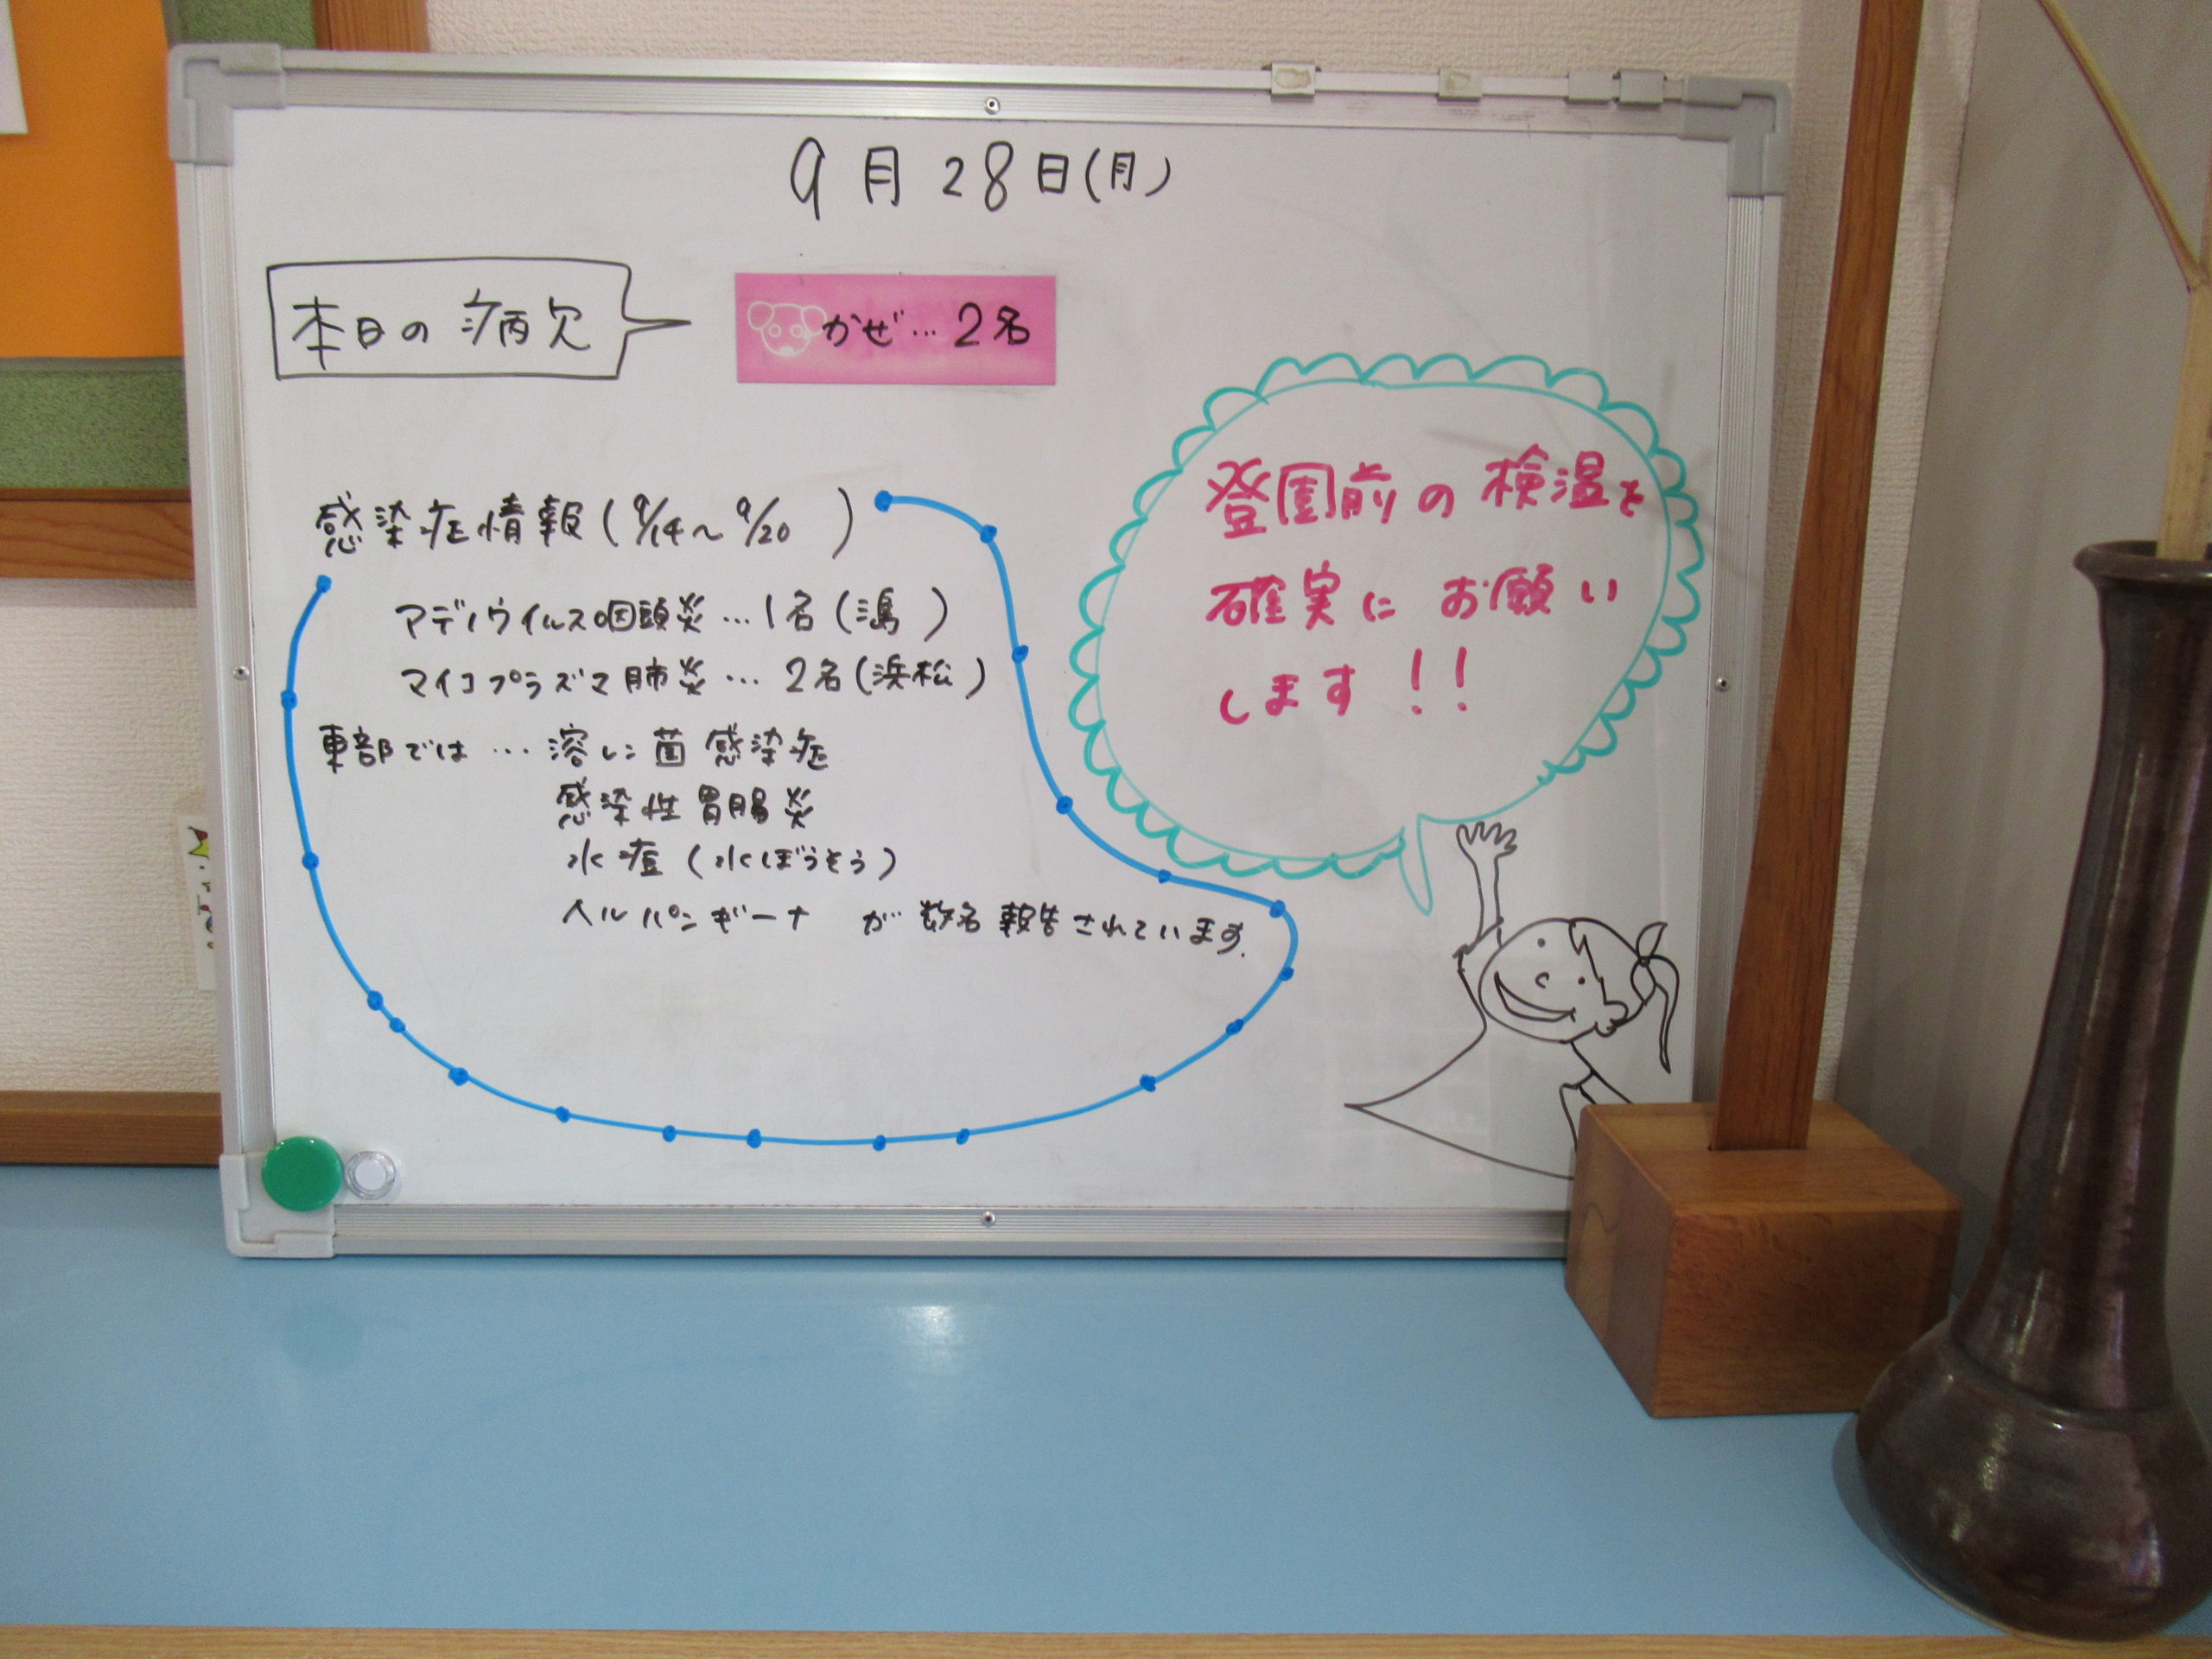 9月28日(月)
本日の病欠
かぜ…2名
感染症情報(9/14～9/20 )
アデノウイルス咽頭炎…1名(潟 )
マイコプラズマ肺炎…2名(浜松 )
東部では…溶レン菌感染症
感染性胃腸炎
水痘(水ぼうそう)
ヘルパンギーナ が数名報告されています。
登園前の検温を
確実にお願い
します!!